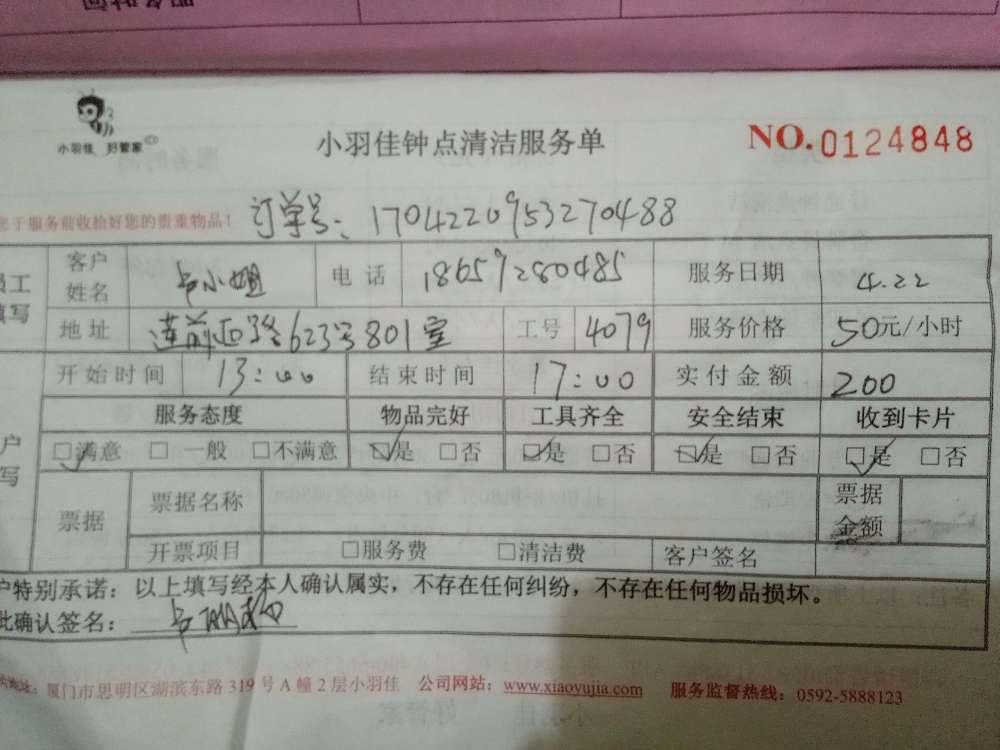 小羽佳 好管家
小羽佳钟点清洁服务单
NO.0124848
于服务前收拾好您的贵重物品！
订单号：1704220953270488
员工
填写
客户姓名 卢小姐 电话 18659280485 服务日期 4.22
地址 莲前西路623号801室 工号 4079 服务价格 50元/小时
开始时间 13:00 结束时间 17:00 实付金额 200
户
写
服务态度 物品完好 工具齐全 安全结束 收到卡片
☑满意 □一般 □不满意 ☑是 □否 ☑是 □否 ☑是 □否 ☑是 □否
票据 票据名称 票据金额
开票项目 □服务费 □清洁费 客户签名
户特别承诺：以上填写经本人确认属实，不存在任何纠纷，不存在任何物品损坏。
此确认签名：卢
地址：厦门市思明区湖滨东路319号A幢2层小羽佳 公司网站：www.xiaoyujia.com 服务监督热线：0592-5888123